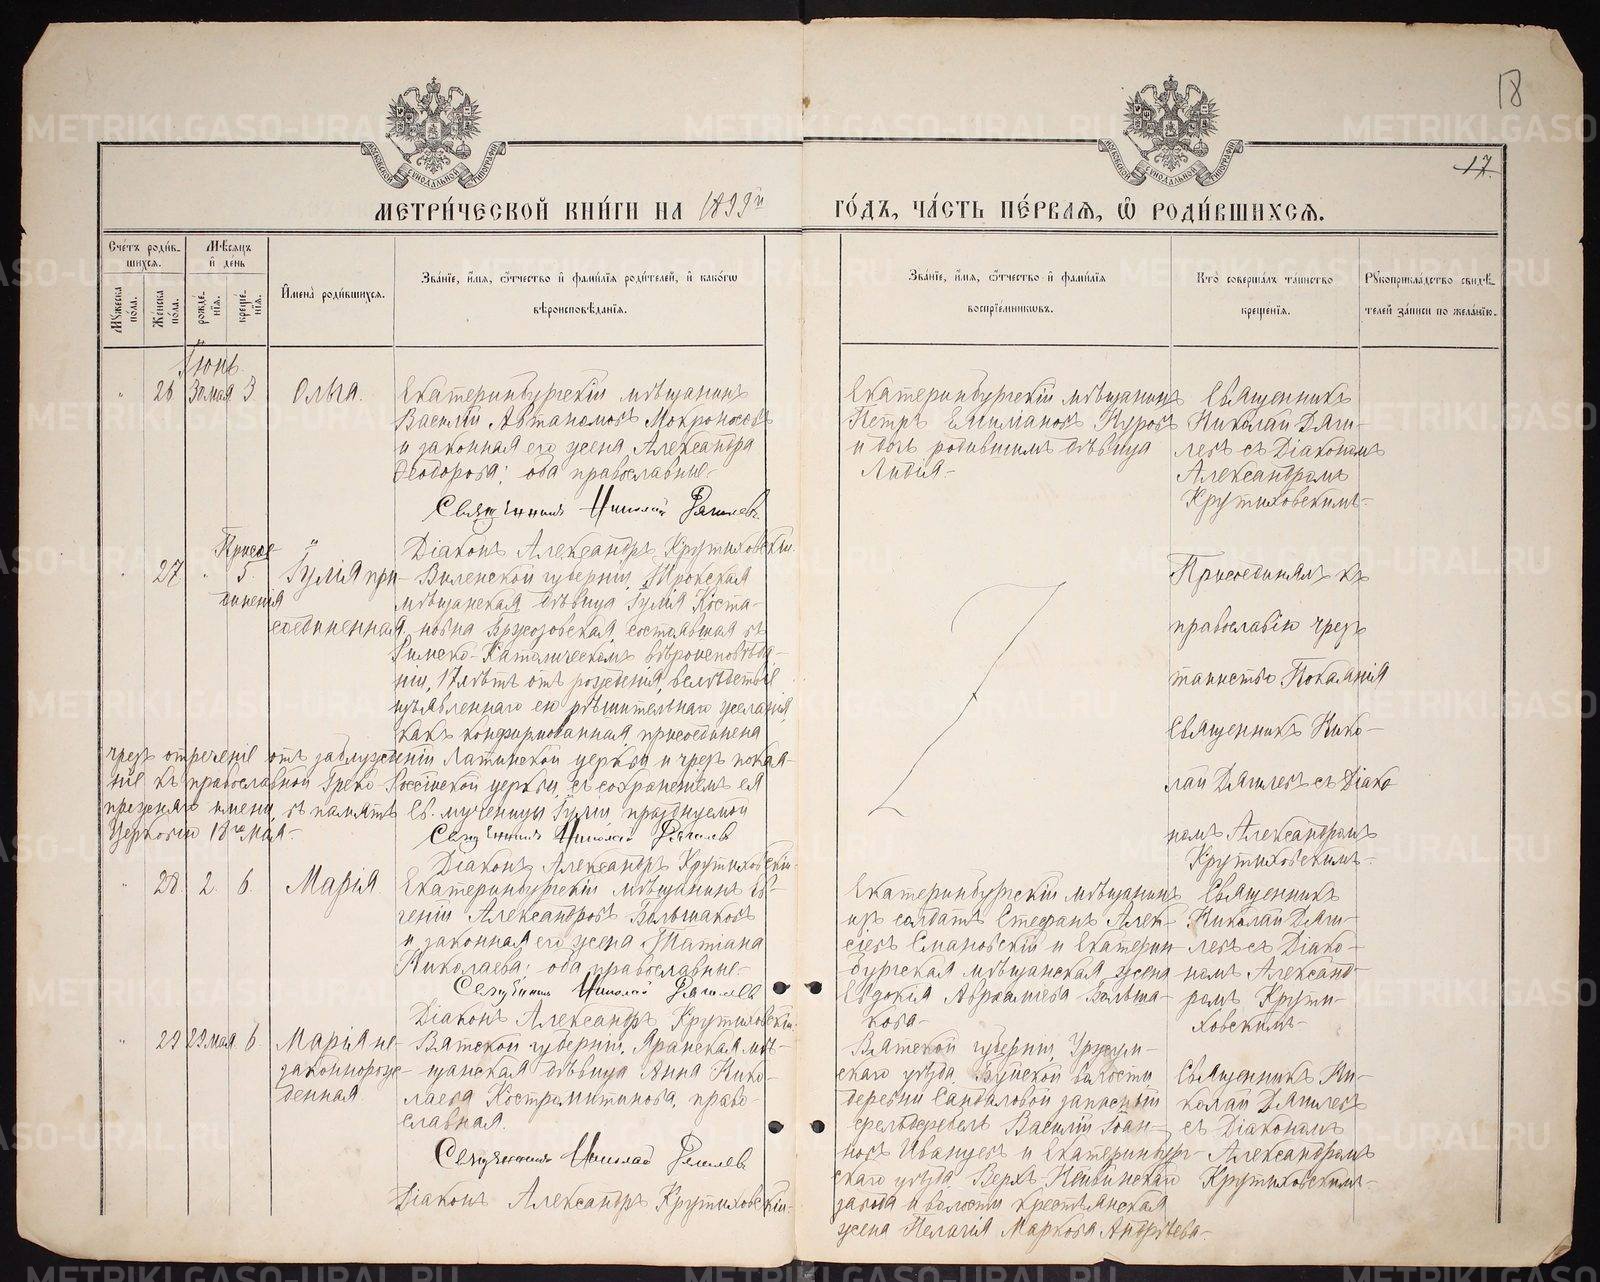 18
17.
МЕТРИ́ЧЕСКОЙ КНИ́ГИ НА 1899й ГО́ДЪ, ЧА́СТЬ ПЕ́РВАЯ, Ѽ РОДИ́ВШИХСЯ.
Сче́тъ роди́вшихся.
Му́жеска по́ла.
Же́нска по́ла.
Мѣ́сяцъ и҆ де́нь
рожде́нїя.
креще́нїя.
И҆мена̀ роди́вшихся.
Зва́нїе, и҆́мя, ѻ҆́тчество и҆ фами́лїя роди́телей, и҆ како́гѡ
вѣроисповѣ́данїя.
Зва́нїе, и҆́мя, ѻ҆́тчество и҆ фами́лїя
воспрїе́мникѡвъ.
Кто̀ соверша́лъ та́инство
креще́нїя.
Рꙋкоприкла́дство свидѣ́-
телей за́писи по жела́нїю.
Іюнь
" 26 30 мая 3. Ольга.
Екатеринбургскій мѣщанинъ
Василій Автаномовъ Мокроносовъ
и законная его жена Александра
Ѳеодорова; оба православные-
Священникъ Николай Дягилевъ
Діаконъ Александръ Крутиховскій.
Екатеринбургскій мѣщанинъ
Петръ Емиліановъ Куровъ
и дочь родившимъ дѣвица
Лидія-
Священникъ
Николай Дяги-
левъ съ Діакономъ
Александромъ
Крутиховскимъ-
" 27 " Присое- 5. динена
Іулія при-
соединенная.
Виленской губерніи, Трокская
мѣщанская дѣвица Іулія Коста-
новна Бржозовская, состоявшая въ
Римско-Католическомъ вѣроисповѣда-
ніи, 17 лѣтъ отъ рожденія, вслѣдствіе
изъявленнаго ею рѣшительнаго желанія,
какъ конфирмованная, присоединена
чрезъ отреченіе отъ заблужденій Латинской церкви и чрезъ покая-
ніе къ православной Греко-Россійской церкви, съ сохраненіемъ ея
прежняго имени, въ память Св. мученицы Іуліи празднуемой
Церковію 18го Мая-
Священникъ Николай Дягилевъ
Діаконъ Александръ Крутиховскій.
Присоединялъ къ
православію чрезъ
таинство Покаянія
Священникъ Нико-
лай Дягилевъ съ Діако
номъ Александромъ
Крутиховскимъ-
" 28. 2. 6. Марія.
Екатеринбургскій мѣщанинъ Ев-
геній Александровъ Большаковъ
и законная его жена Татіана
Николаева; оба православные-
Священникъ Николай Дягилевъ
Діаконъ Александръ Крутиховскій.
Екатеринбургскій мѣщанинъ
изъ солдатъ Стефанъ Алек-
сіевъ Смановскій и Екатерин-
бургская мѣщанская жена
Евдокія Аврааміева Больша-
кова-
Священникъ
Николай Дяги-
левъ съ Діако-
номъ Александ-
ромъ Крути-
ховскимъ-
" 29 29 мая 6 Марія не-
законнорож-
денная.
Вятской губерніи, Яранская мѣ-
щанская дѣвица Анна Нико-
лаева Костромитинова, право-
славная.
Священникъ Николай Дягилевъ
Діаконъ Александръ Крутиховскій-
Вятской губерніи, Уржум-
скаго уѣзда, Буйской волости,
деревни Сандаловой запасный
фельдфебель Василій Іоан-
новъ Иванцевъ и Екатеринбург-
скаго уѣзда Верхъ-Нейвинскаго
завода и волости крестьянская
жена Пелагія Маркова Андрѣева-
Священникъ Ни-
колай Дягилевъ
съ Діакономъ
Александромъ
Крутиховскимъ-
METRIKI.GASO-URAL.RU